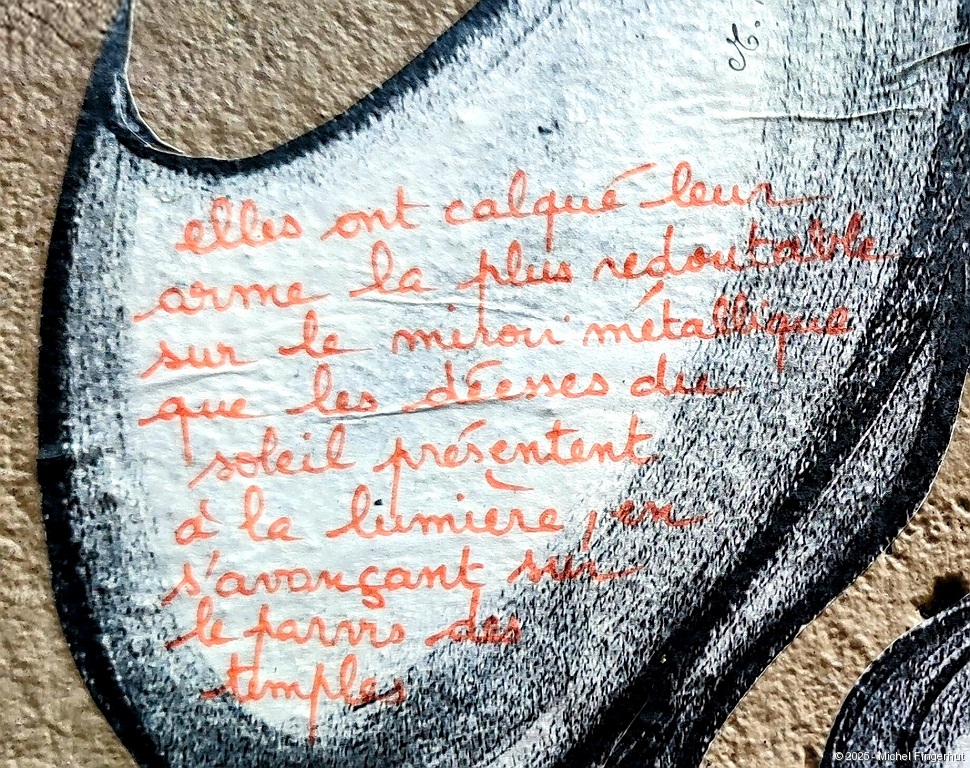 M.
elles ont calqué leur
arme la plus redoutable
sur le miroir métallique
que les déesses du
soleil présentent
à la lumière, en
s'avançant sur
le parvis des
temples
© 2025 - Michel Fingerhut